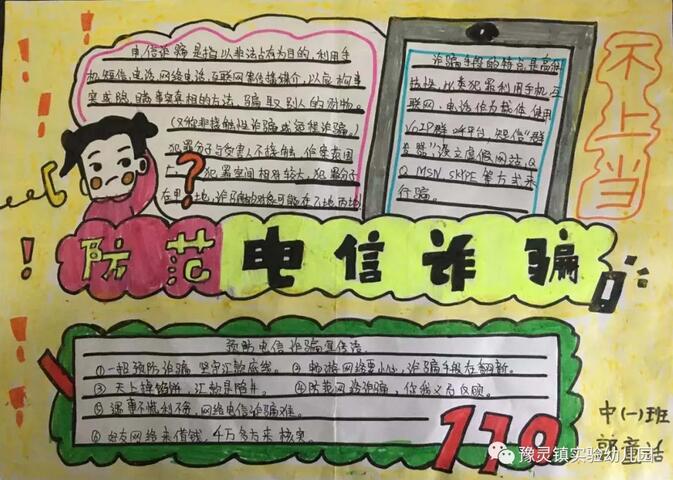 电信诈骗是指以非法占有为目的,利用手
机短信、电话、网络电话、互联网等传播媒介,以虚构事
实或隐瞒事实真相的方法,骗取别人的财物。
(又称非接触性诈骗或远程诈骗。)
犯罪分子与受害人不接触,作案
犯罪空间相对较大,犯罪分子
诈骗手段的特点是高科
技性,此类犯罪利用手机、互
联网、电话作为载体,使用
VOIP群呼平台、短信"群
发器"设立虚假网站、Q
Q MSN SKYPE等方式来
行骗。
不上当
?
防范电信诈骗
预防电信诈骗宣传语
①一起预防诈骗 坚守汇款底线。 ② 畅游网络要小心,诈骗手段在翻新。
③ 天上掉馅饼,汇款是陷井。 ④防范网络诈骗,你我义不容辞。
⑤遇事不慌利不贪,网络电信诈骗难。
⑥ 好友网络来借钱,千万多方来核实。
110
中(一)班
郭童话
豫灵镇实验幼儿园